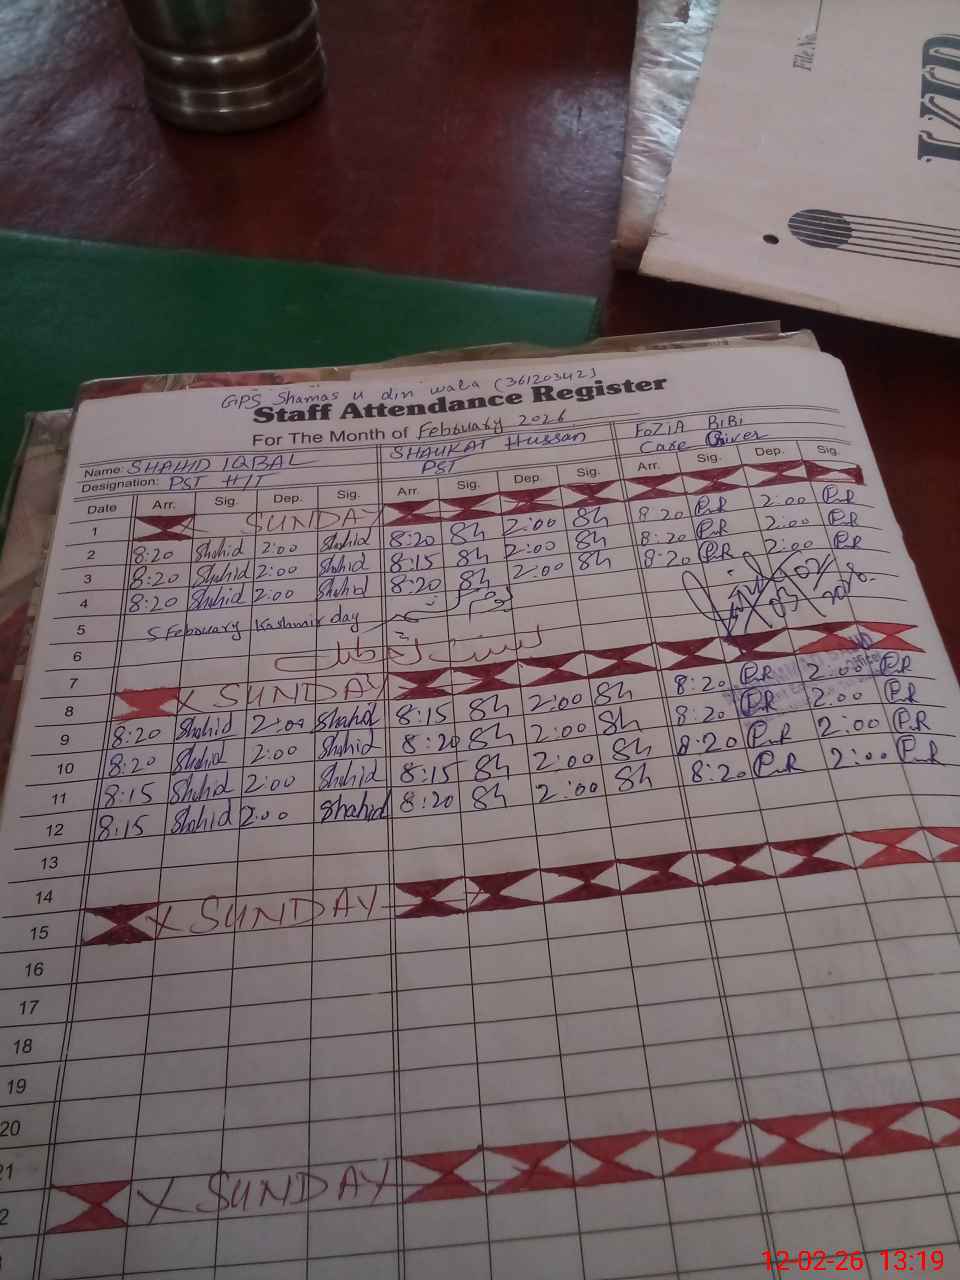 File No.
GPS Shamas u din wala (36120342)
Staff Attendance Register
For The Month of February 2026
Name: SHAHID IQBAL SHAUKAT Hussan FOZIA BiBi
Designation: PST H/T PST Care Giver
Date Arr. Sig. Dep. Sig. Arr. Sig. Dep. Sig. Arr. Sig. Dep. Sig.
1 X SUNDAY
2 8:20 Shahid 2:00 Shahid 8:20 Sh 2:00 Sh 8:20 2:00
3 8:20 Shahid 2:00 Shahid 8:15 Sh 2:00 Sh 8:20 2:00
4 8:20 Shahid 2:00 Shahid 8:20 Sh 2:00 Sh 8:20 2:00
5 5 Febouary Kashmir day
6
7
8 X SUNDAY
9 8:20 Shahid 2:00 Shahid 8:15 Sh 2:00 Sh 8:20 2:00
10 8:20 Shahid 2:00 Shahid 8:20 Sh 2:00 Sh 8:20 2:00
11 8:15 Shahid 2:00 Shahid 8:15 Sh 2:00 Sh 8:20 2:00
12 8:15 Shahid 2:00 Shahid 8:20 Sh 2:00 Sh 8:20 2:00
13
14
15 X SUNDAY
16
17
18
19
20
21
X SUNDAY
12-02-26 13:19